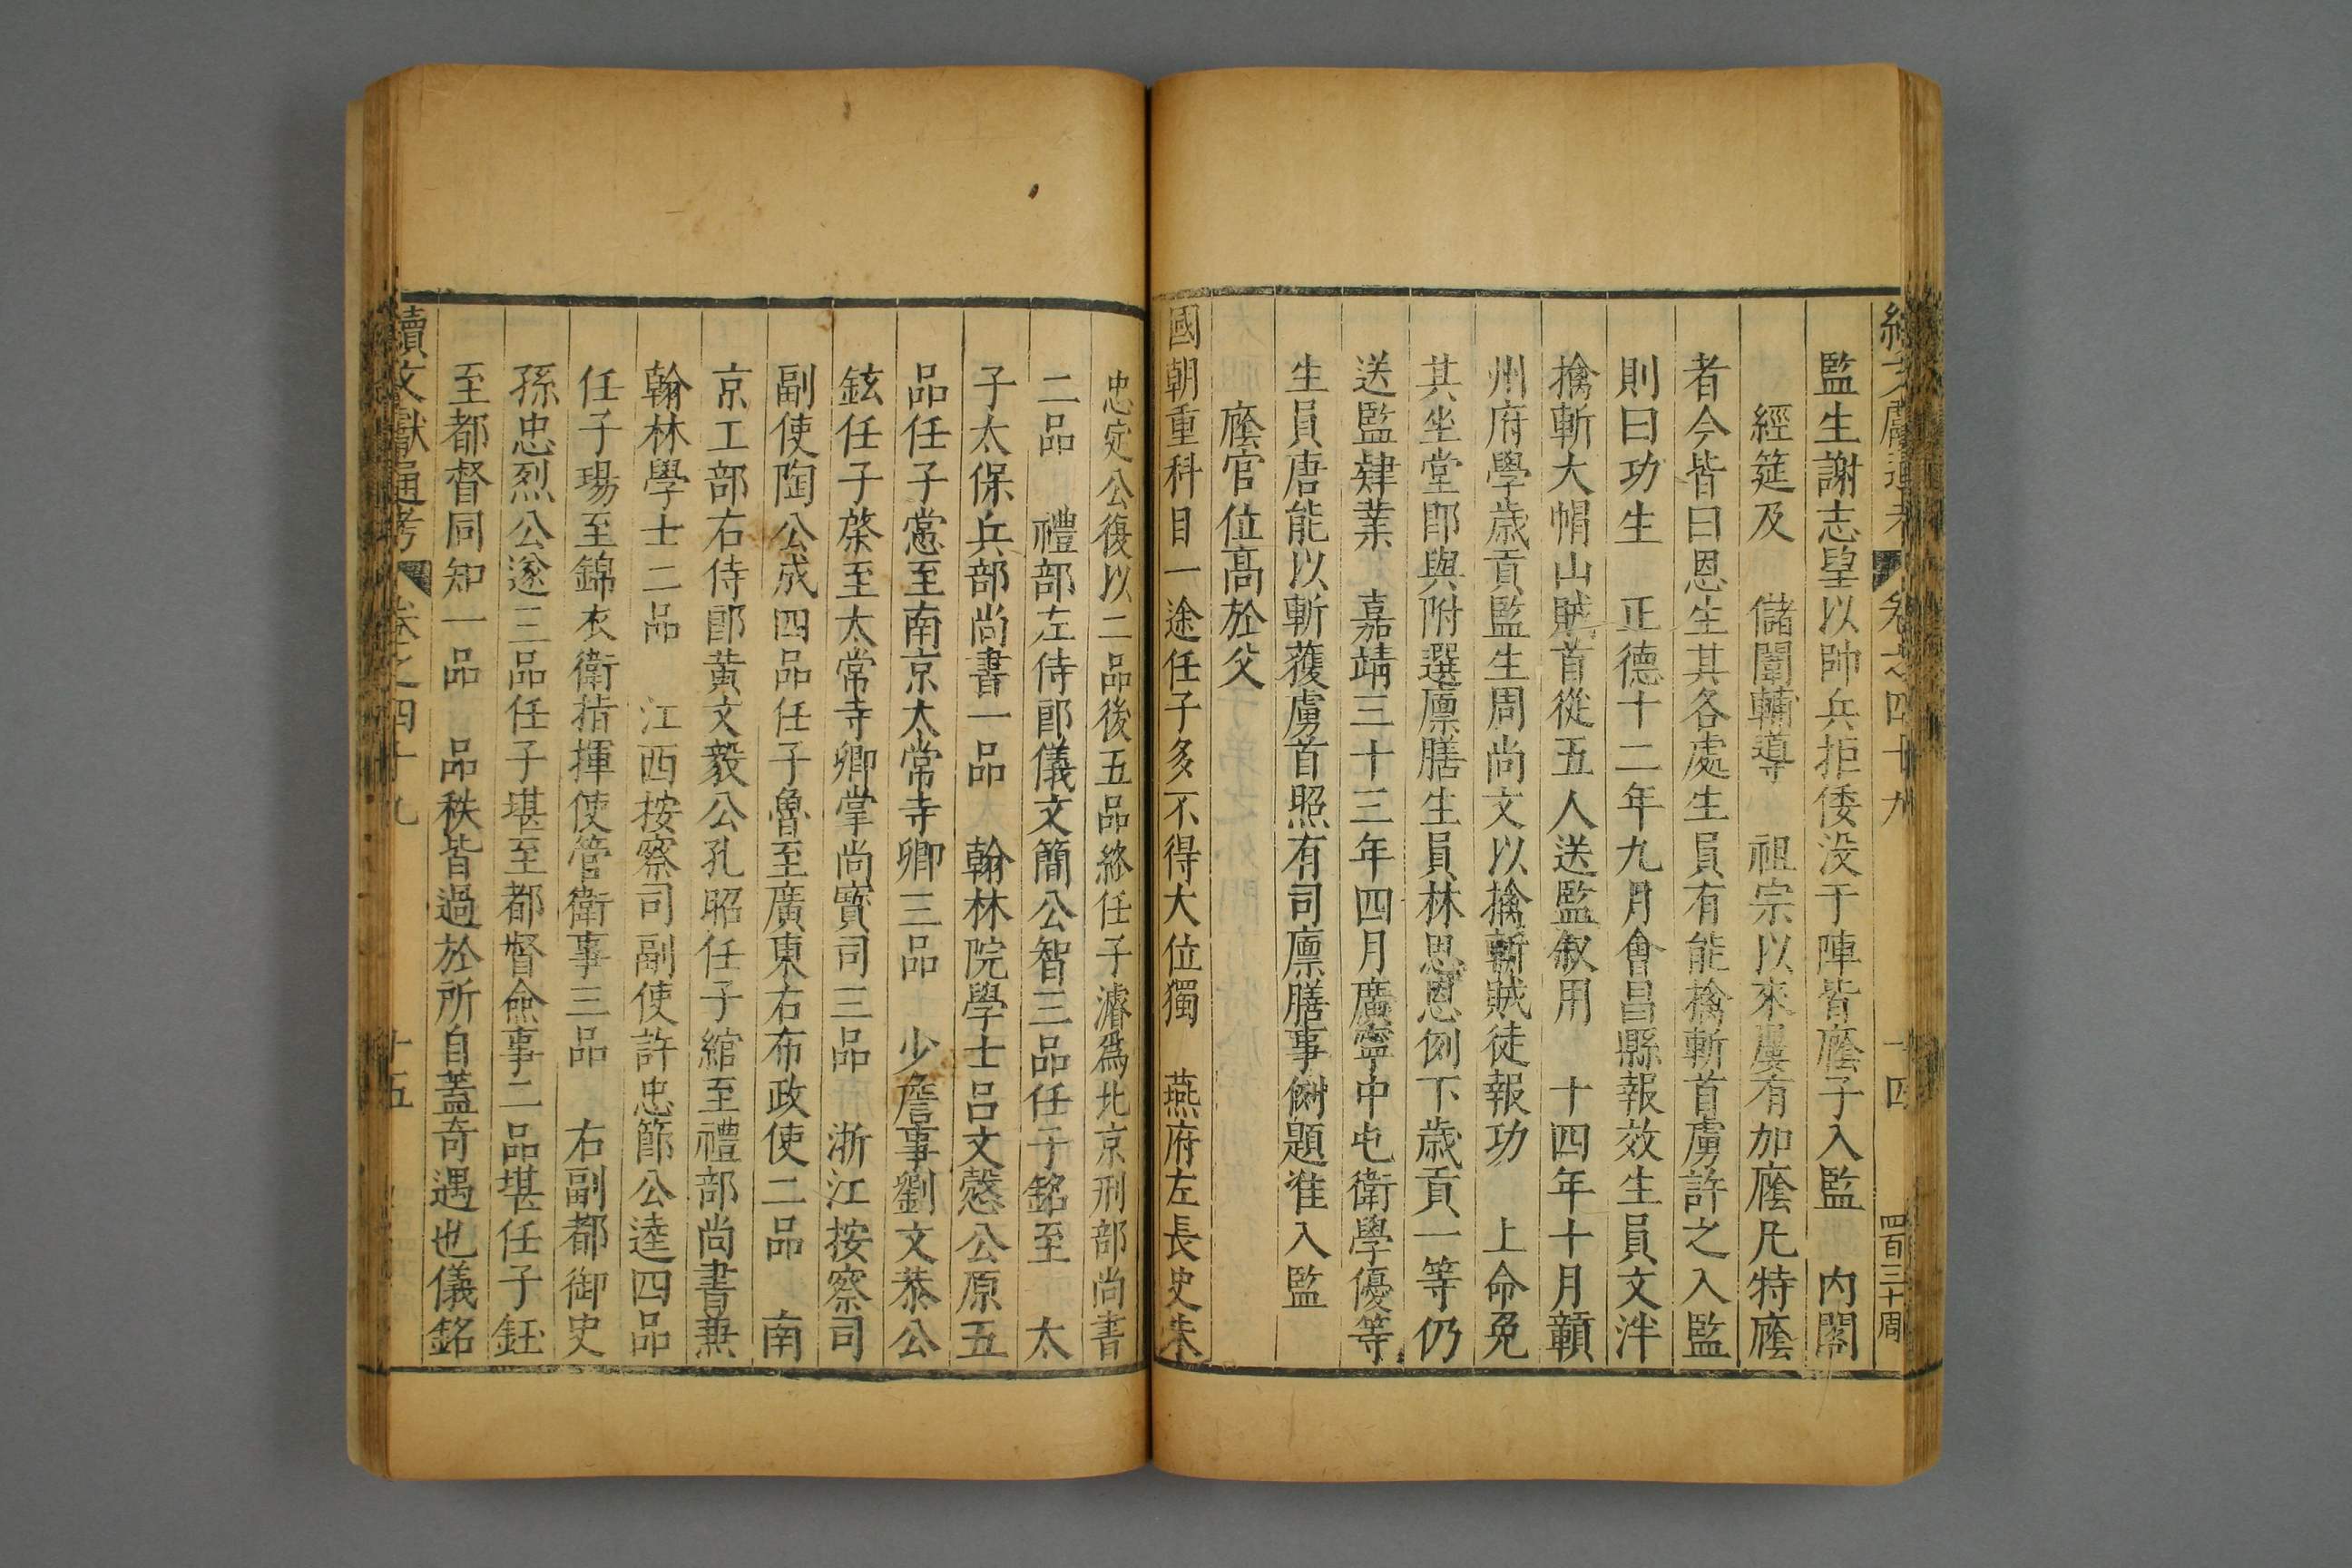 續文獻通考 卷之四十九 十四 四百三十周
監生謝志望以帥兵拒倭没于陣皆廕子入監 内閣
經筵及 儲闈輔導 祖宗以來屢有加廕凡特廕
者今皆曰恩生其各處生員有能擒斬首虜許之入監
則曰功生 正德十二年九月會昌縣報效生員文泮
擒斬大帽山賊首從五人送監叙用 十四年十月贛
州府學歲貢監生周尚文以擒斬賊徒報功 上命免
其坐堂即與附選廩膳生員林思恩例下歲貢一等仍
送監肄業 嘉靖三十三年四月廣寧中屯衛學優等
生員唐能以斬獲虜首照有司廩膳事例題准入監
廕官位高於父
國朝重科目一途任子多不得大位獨 燕府左長史朱
忠定公復以二品後五品終任子濬爲北京刑部尚書
二品 禮部左侍郎儀文簡公智三品任子銘至 太
子太保兵部尚書一品 翰林院學士呂文懿公原五
品任子㦂至南京太常寺卿三品 少詹事劉文恭公
鉉任子棨至太常寺卿掌尚寶司三品 浙江按察司
副使陶公成四品任子魯至廣東右布政使二品 南
京工部右侍郎黃文毅公孔昭任子綰至禮部尚書兼
翰林學士二品 江西按察司副使許忠節公逵四品
任子瑒至錦衣衛指揮使管衛事三品 右副都御史
孫忠烈公遂三品任子堪至都督僉事二品堪任子鈺
至都督同知一品 品秩皆過於所自蓋奇遇也儀銘
續文獻通考 卷之四十九 十五